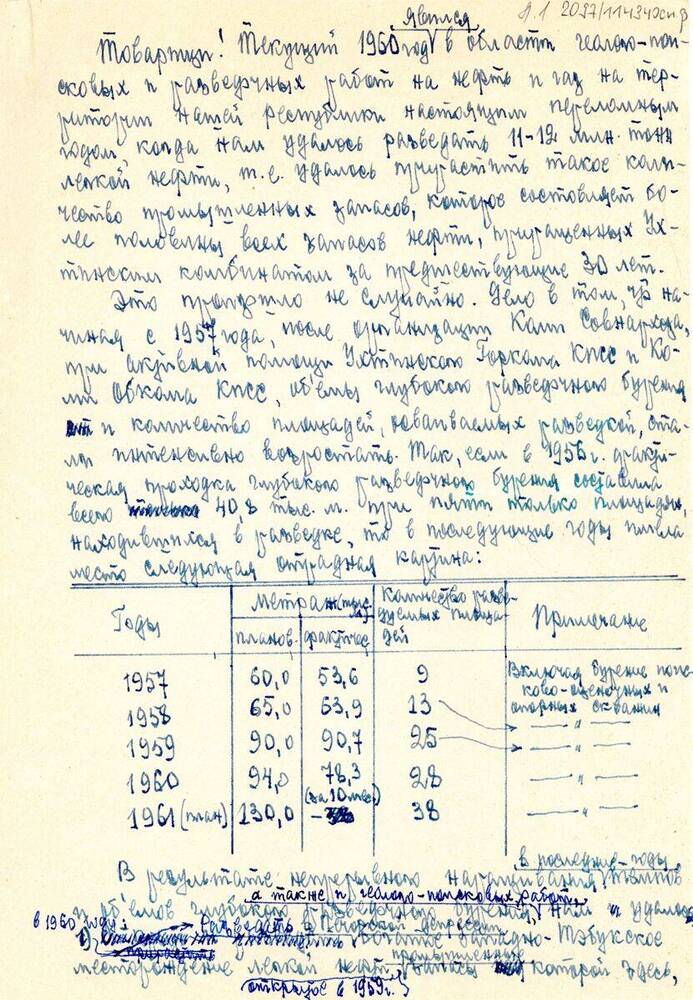 явился
Товарищи! Текущий 1960 год в области геолого-пои-
сковых и разведочных работ на нефть и газ на тер-
ритории нашей республики настоящим переломным
годом, когда нам удалось разведать 11-12 млн. тонн
легкой нефти, т.е. удалось прирастить такое коли-
чество промышленных запасов, которое составляет бо-
лее половины всех запасов нефти, приращенных Ух-
тинским комбинатом за предшествующие 30 лет.
Это произошло не случайно. Дело в том, что на-
чиная с 1957 года, после организации Коми Совнархоза,
при активной помощи Ухтинского Горкома КПСС и Ко-
ми Обкома КПСС, объемы глубокого разведочного бурения
и количество площадей, осваиваемых разведкой, ста-
ли интенсивно возрастать. Так, если в 1956 г. факти-
ческая проходка глубокого разведочного бурения составила
всего 40,8 тыс. м. при пяти только площадях,
находившихся в разведке, то в последующие годы имела
место следующая отрадная картина:
Годы Метраж (тыс. Количество разве- Примечание
дуемых площа-
планов. фактичес. дей
1957 60,0 53,6 9 Включая бурение поис-
ково-оценочных и
1958 65,0 63,9 13 опорных скважин
1959 90,0 90,7 25 — " —
1960 94,0 78,3 28 — " —
(за 10 мес.)
1961 (план) 130,0 - 38 — " —
в последние годы
В результате непрерывного наращивания темпов
а также и геолого-поисковых работ
и объемов глубокого разведочного бурения, нам и удалось
в 1960 году: разведать в Печорской депрессии
1) Западно-Тэбукское
промышленные
месторождение легкой нефти запасы которой здесь,
открытое в 1959 г.